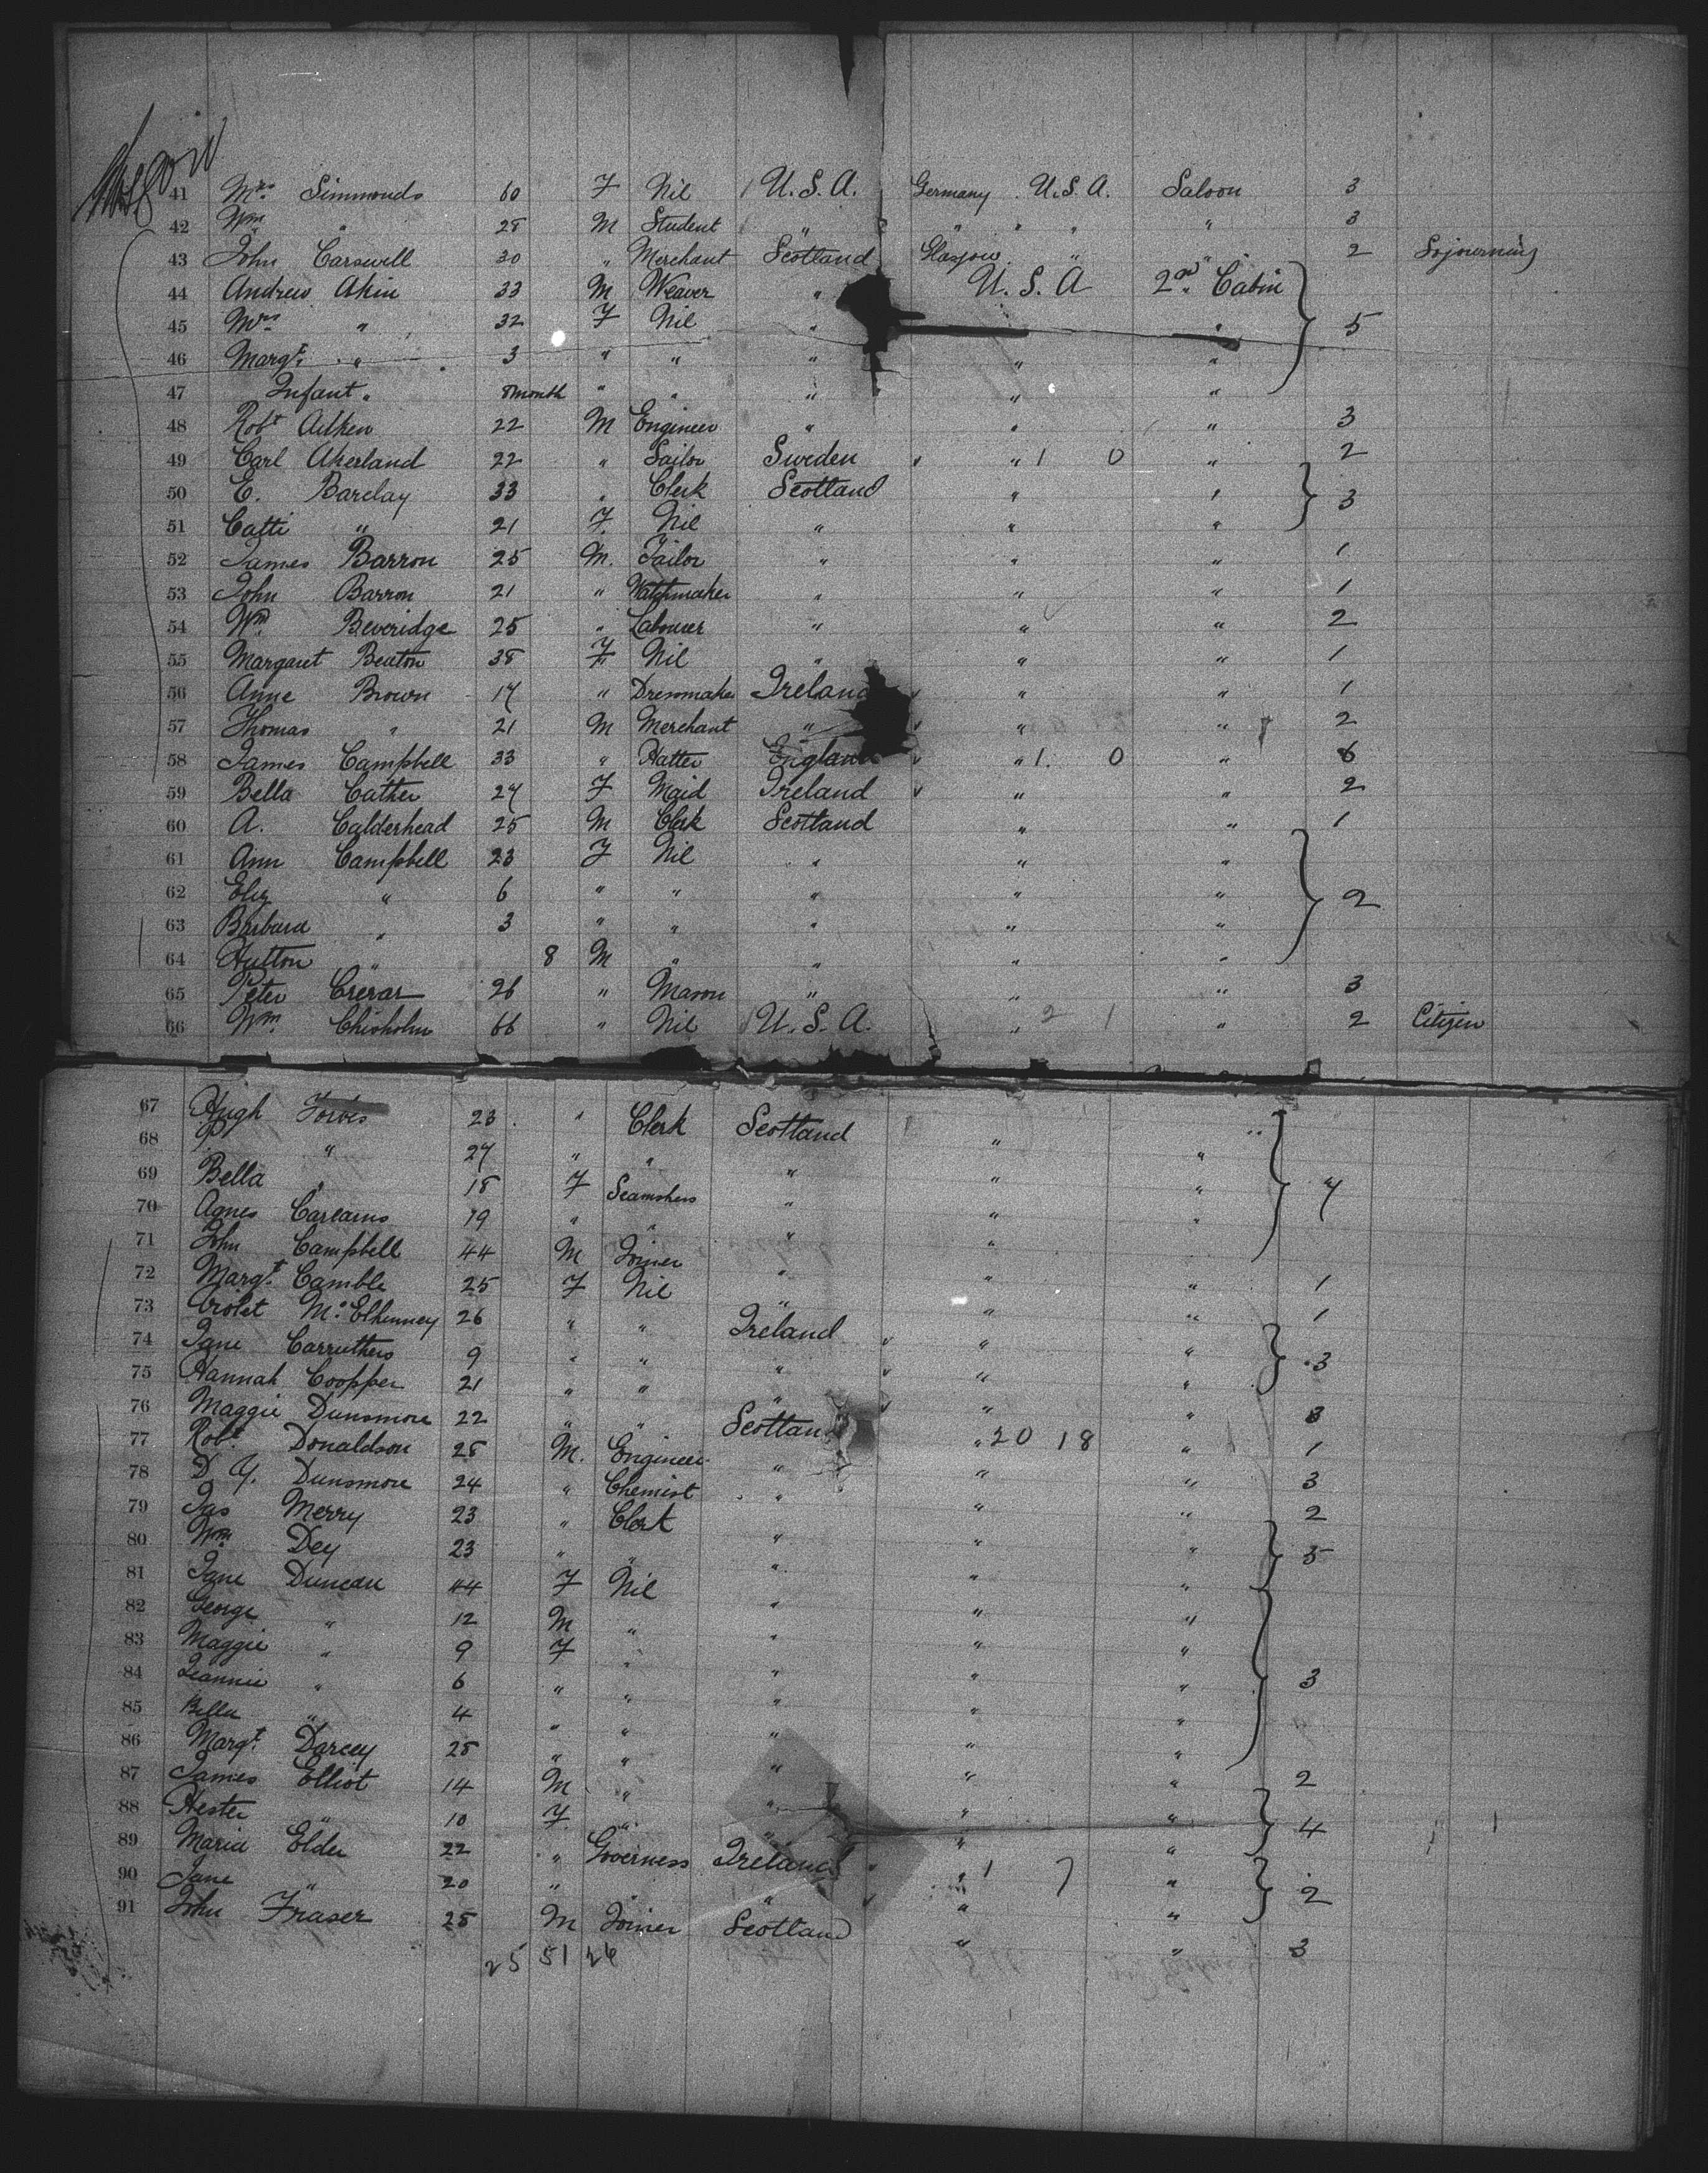 41 Mrs. Simmonds 60 F Nil U.S.A. Germany U.S.A. Saloon 3
42 Wm " 28 M Student " " " " 3
43 John Carswell 30 " Merchant Scotland Glasgow " " 2 Sojourning
44 Andrew Akin 33 M Weaver " U.S.A 2nd Cabin
45 Mrs " 32 F Nil " " 5
46 Margt. " 3 " " " " "
47 Infant " 8 month " " " " "
48 Robt Aitken 22 M Engineer " " " 3
49 Carl Akerland 22 " Sailor Sweden " 1 0 " 2
50 E. Barclay 33 " Clerk Scotland " " 3
51 Catti " 21 F. Nil " " "
52 James Barron 25 M. Tailor " " " 1
53 John Barron 21 " Watchmaker " " " 1
54 Wm. Beveridge 25 " Labourer " " " 2
55 Margaret Beaton 38 F Nil " " " 1
56 Anne Brown 17 " Dressmaker Ireland " " 1
57 Thomas " 21 M Merchant " " " 2
58 James Campbell 33 " Hatter England " 1. 0 " 6
59 Bella Cather 27 F Maid Ireland " " 2
60 A. Calderhead 25 M Clerk Scotland " " 1
61 Ann Campbell 23 F Nil " " "
62 Eliz " 6 " " " " " 2
63 Barbara " 3 " " " " "
64 Hutton " 8 M " " " "
65 Peter Crerar 26 " Mason " " " 3
66 Wm. Chisholm 66 " Nil U.S.A. " 2 1 " 2 Citizen
67 Hugh Forbes 23 " Clerk Scotland " "
68 P. " 27 " " " " "
69 Bella " 18 F Seamstress " " " 7
70 Agnes Carcarns 19 " " " " "
71 John Campbell 44 M Joiner " "
72 Margt. Camble 25 F Nil " " " 1
73 Violet McElhenney 26 " " Ireland " " 1
74 Jane Carruthers 9 " " " " " 3
75 Hannah Coopper 21 " " " " "
76 Maggie Dunsmore 22 " " Scotland " " 3
77 Robt. Donaldson 28 M. Engineer " " 20 18 " 1
78 D. Y. Dunsmore 24 " Chemist " " " 3
79 Jas Merry 23 " Clerk " " " 2
80 Wm. Dey 23 " " " " " 5
81 Jane Duncan 44 F Nil " " "
82 George " 12 M " " " "
83 Maggie " 9 F " " " "
84 Jeannie " 6 " " " " " 3
85 Bella " 4 " " " " "
86 Margt. Darcey 28 " " " " "
87 James Elliot 14 M " " " " 2
88 Hester " 10 F " " " " 4
89 Maria Elder 22 " Governess Ireland " 1 7 "
90 Jane " 20 " " " " " 2
91 John Fraser 25 M Joiner Scotland " " 3
25 51 26